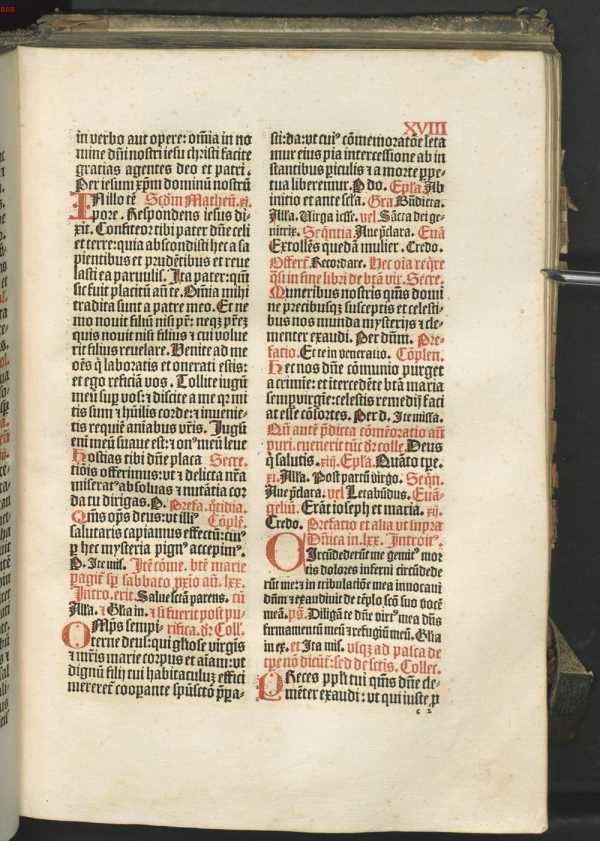 XVIII
in verbo aut opere: om̄ia in no
mine dn̄i nostri iesu christi facite
gratias agentes deo et patri.
Per iesum xp̄m dominū nostrū
IN illo tē Scd̄m Matheū. xi.
pore. Respondens iesus di⸗
xit. Confiteor tibi pater dn̄e celi
et terre: quia abscondisti hec a sa
pientibus et prudētibus et reue
lasti ea paruulis. Ita pater: qm̄
sic fuit placitū an̄ te. Om̄ia mihi
tradita sunt a patre meo. Et ne
mo nouit filiū nisi pr̄: neqꝫ pr̄eꝫ
quis nouit nisi filius ⁊ cui volue
rit filius reuelare. Uenite ad me
oēs q̇ laboratis et onerati estis:
et ego reficiā vos. Tollite iugū
meū suꝑ vos: ⁊ discite a me qꝛ mi
tis sum ⁊ hūilis corde: ⁊ inuenie⸗
tis requiē aniabus vr̄is. Jugū
eni meū suaue est: ⁊ onꝰ meū leue
Hostias tibi dn̄e placa Secre.
tiōis offerimus: vt ⁊ delicta nr̄a
miseratꝰ absoluas ⁊ nutātia cor
da tu dirigas. P. Prefa. q̄tidia.
Qm̄s op̄s deus: vt illiꝰ Cōplē.
salutaris capiamus effectū: cuiꝰ
ꝑ hec mysteria pignꝰ accepimꝰ.
P. Ite mis. Itē cōme. btē marie
pagit̄ ꝑ sabbato ꝓxio an̄. lxx.
Intro. erit. Salue scā parens. cū
Alla. ⁊ Glia in. ⁊ si fuerit post pu⸗
OMp̄s sempi⸗ rifica. dr̄ Coll.
terne deus: qui gliose virgīs
⁊ mr̄is marie corpus et aīam: vt
dignū filij tui habitaculuꝫ effici
mereret̄ cooꝑante spūsctō p̄ꝑa⸗
sti: da: vt cuiꝰ cōmemoratōe leta
mur eius pia intercessione ab in
stantibus ꝑiculis ⁊ a morte ꝑpe⸗
tua liberemur. P do. Epl̄a. Ab
initio et ante scl̄a. Gra Bn̄dicta.
Alla. Uirga iesse. vel Sancta dei ge⸗
nitrix. Seq̄ntia Aue p̄clara. Euā
Extollēs quedā mulier. Credo.
Offert̄. Recordare. Hec oīa reqͥre
q̄si in fine libri de btā vir. Secre.
Muneribus nostris qm̄s domi
ne precibusqꝫ susceptis et celesti⸗
bus nos munda mysterijs ⁊ cle⸗
menter exaudi. Per dn̄m. Pre⸗
fatio. Et te in veneratio. Cōplen.
Het nos dn̄e cōmunio purget
a crimīe: et ītercedēte btā maria
semꝑ virgīe: celestis remedij faci
at esse cōsortes. Per d. Ite missa.
Qn̄ autē p̄dicta cōmēoratio an̄
puri. euenerit tūc dr̄ colle. Deus
q̇ salutis. xij. Epl̄a. Quāto tꝑe.
xi. Alla. Post partū virgo. Seqn̄.
Aue p̄clara. vel Letabūdus. Euā⸗
geliū. Erāt ioseph et maria. xij.
Credo. Prefatio et alia vt supra
Dn̄ica in. lxx. Introitꝰ.
CIrcūdederūt me gemitꝰ mor
tis dolores inferni circūdede
rūt me: ⁊ in tribulatiōe mea inuocaui
dn̄m ⁊ exaudiuit de tēplo sctō suo vocē
meā. ps̄. Diligā te dn̄e virtꝰ mea dn̄s
firmamentū meū ⁊ refugiū meū. Glia
in ex. et Ita mis. vsqꝫ ad pasca de
tꝑe nō dicūt̄: sed de sctīs. Collec.
PReces ppl̄i tui qm̄s dn̄e cle⸗
mēter exaudi: vt qui iuste ꝓ
c 2